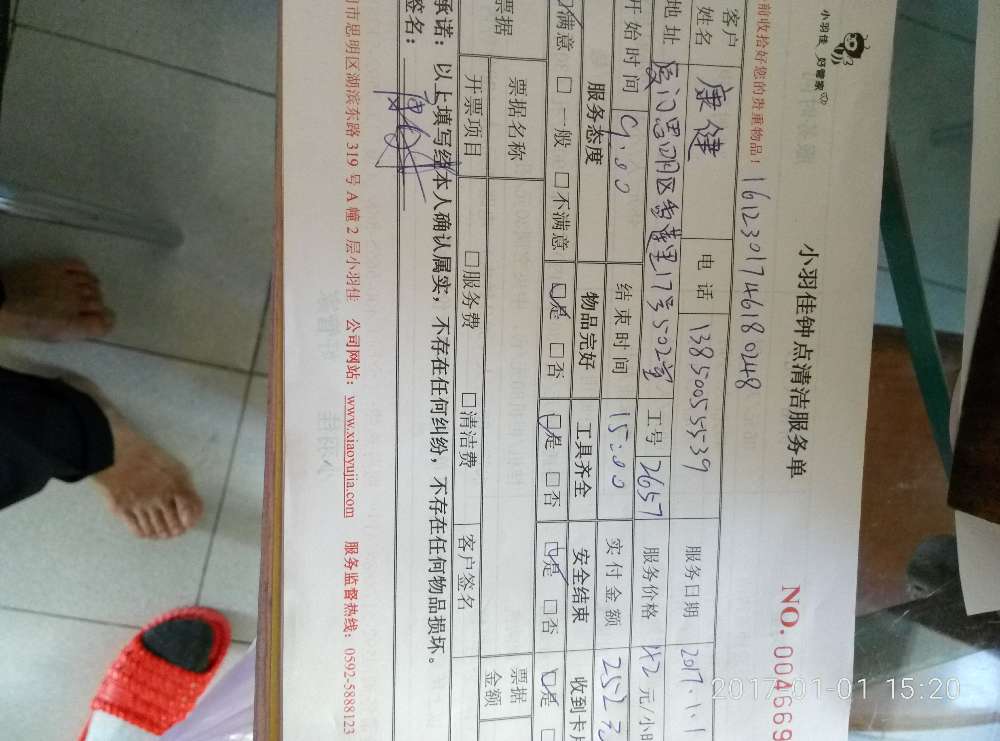 小羽佳 好管家
小羽佳钟点清洁服务单
前收拾好您的贵重物品！
16123017461 80248
NO. 004669
客户姓名 康健 电话 13850055539 服务日期 2017.1.1
地址 厦门思明区 17号502室 工号 2657 服务价格 42元/小时
开始时间 9:00 结束时间 15:00 实付金额 252元
服务态度 物品完好 工具齐全 安全结束 收到卡片
满意 □一般 □不满意 □是 □否 □是 □否 □是 □否 □是
票据 票据名称 票据金额
开票项目 □服务费 □清洁费 客户签名
承诺：以上填写经本人确认属实，不存在任何纠纷，不存在任何物品损坏。
签名：
市思明区湖滨东路319号A幢2层小羽佳 公司网站：www.xiaoyujia.com 服务监督热线：0592-5888123
2017-01-01 15:20